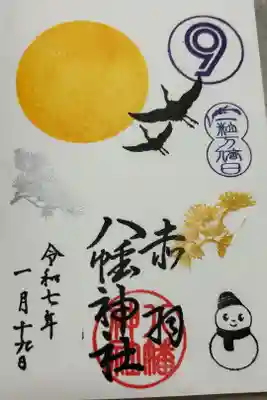 9
一粒万倍日
赤羽
八幡神社
令和七年
一月十九日